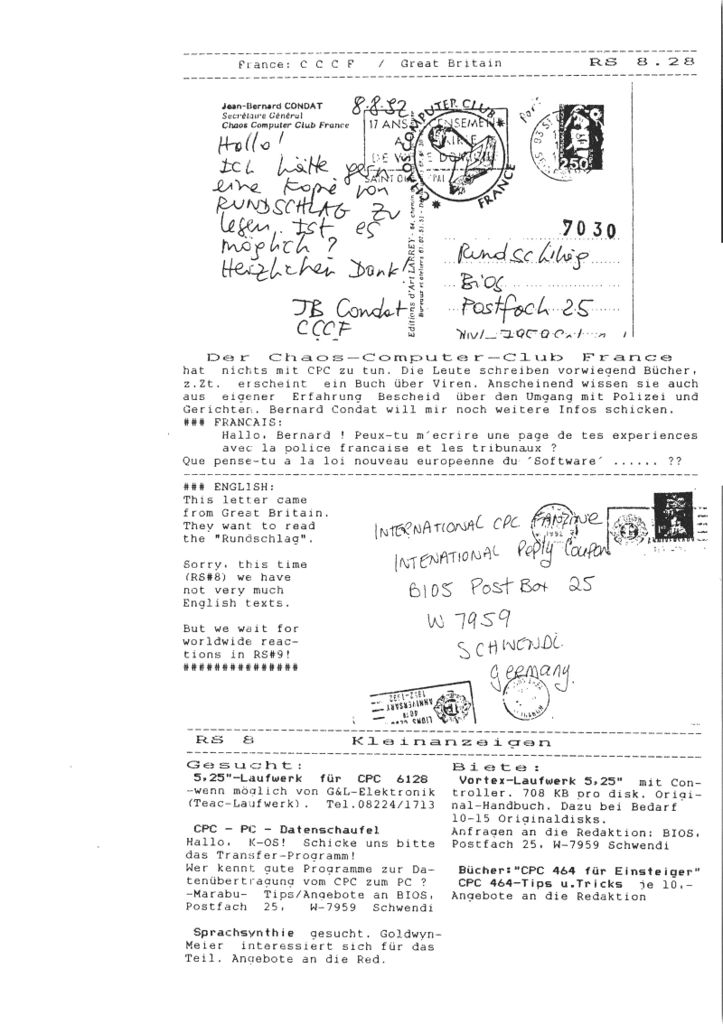 France: C C C F / Great Britain RS 8.28
Jean-Bernard CONDAT
Secrétaire Général
Chaos Computer Club France
8.8.92
Hallo!
Ich hätte gern
eine Kopie von
RUNDSCHLAG zu
lesen. Ist es
möglich ?
Herzlichen Dank!
JB Condat
CCCF
17 ANS
CHAOS COMPUTER CLUB
FRANCE
Editions d'Art LARREY
2.50
7030
Bios
Postfach 25
Der Chaos-Computer-Club France
hat nichts mit CPC zu tun. Die Leute schreiben vorwiegend Bücher,
z.Zt. erscheint ein Buch über Viren. Anscheinend wissen sie auch
aus eigener Erfahrung Bescheid über den Umgang mit Polizei und
Gerichten. Bernard Condat will mir noch weitere Infos schicken.
### FRANCAIS:
Hallo, Bernard ! Peux-tu m'ecrire une page de tes experiences
avec la police francaise et les tribunaux ?
Que pense-tu a la loi nouveau europeenne du 'Software' ...... ??
### ENGLISH:
This letter came
from Great Britain.
They want to read
the "Rundschlag".
Sorry, this time
(RS#8) we have
not very much
English texts.
But we wait for
worldwide reac-
tions in RS#9!
###############
INTERNATIONAL CPC FANZINE
INTENATIONAL Reply Coupon
BIOS Post Box 25
W 7959
SCHWENDI
Germany.
LIONS
40TH
ANNIVERSARY
1952-1992
RS 8 Kleinanzeigen
Gesucht:
5,25"-Laufwerk für CPC 6128
-wenn möglich von G&L-Elektronik
(Teac-Laufwerk). Tel.08224/1713
CPC - PC - Datenschaufel
Hallo, K-OS! Schicke uns bitte
das Transfer-Programm!
Wer kennt gute Programme zur Da-
tenübertragung vom CPC zum PC ?
-Marabu- Tips/Angebote an BIOS,
Postfach 25, W-7959 Schwendi
Sprachsynthie gesucht. Goldwyn-
Meier interessiert sich für das
Teil. Angebote an die Red.
Biete:
Vortex-Laufwerk 5,25" mit Con-
troller. 708 KB pro disk. Origi-
nal-Handbuch. Dazu bei Bedarf
10-15 Originaldisks.
Anfragen an die Redaktion: BIOS,
Postfach 25, W-7959 Schwendi
Bücher:"CPC 464 für Einsteiger"
CPC 464-Tips u.Tricks je 10,-
Angebote an die Redaktion